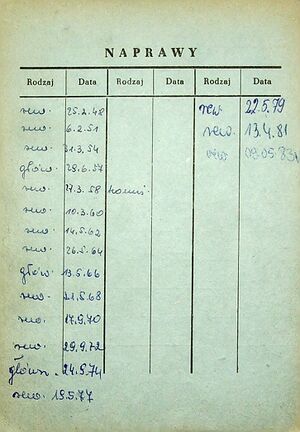 NAPRAWY
Rodzaj Data Rodzaj Rodzaj Data
rew. 25.2.48 rew. 22.5.79
rew. 6.2.51 rew. 13.4.81
rew. 31.3.54 rew 09.05.83
główn. 28.6.57
rew. 27.3.58
rew. 10.3.60
rew. 14.5.62
rew. 26.5.64
główn. 13.5.66
rew. 21.5.68
rew. 17.9.70
rew. 29.9.72
główn. 24.5.74
rew. 19.5.77